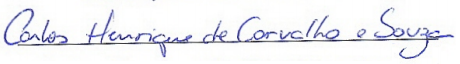 Carlos Henrique de Carvalho e Souza